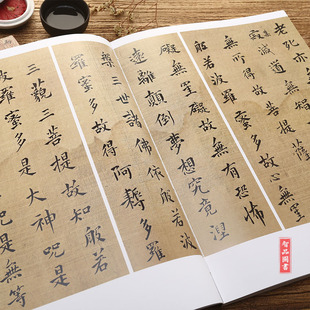 老死亦無
滅道無
無所得故菩提薩
般若波羅蜜多故心無罣
礙無罣礙故無有恐怖
遠離顛倒夢想究竟涅
三世諸佛依般若波
羅蜜多故得阿耨多羅
三藐三菩提故知般若
羅蜜多是大神呪是
呪是無等
智品圖書